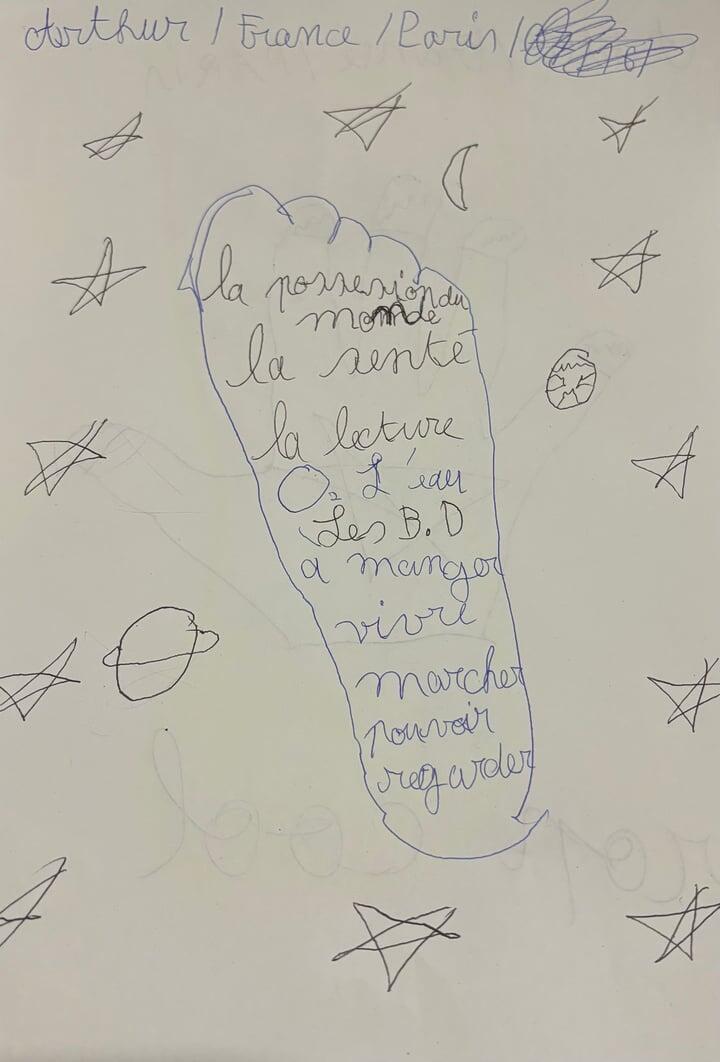 Arthur / France / Paris /
la possession du
monde
la senté
la lecture
O₂ L'eau
Les B.D
a manger
vivre
marcher
pouvoir
regarder